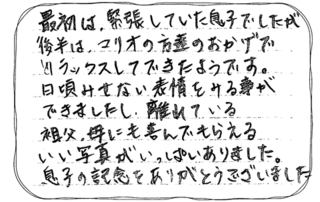 最初は、緊張していた息子でしたが
後半は、コリオの方達のおかげで
リラックスしてできたようです。
日頃みせない表情をみる事が
できましたし、離れている
祖父、母にも喜んでもらえる
いい写真がいっぱいありました。
息子の記念をありがとうございました